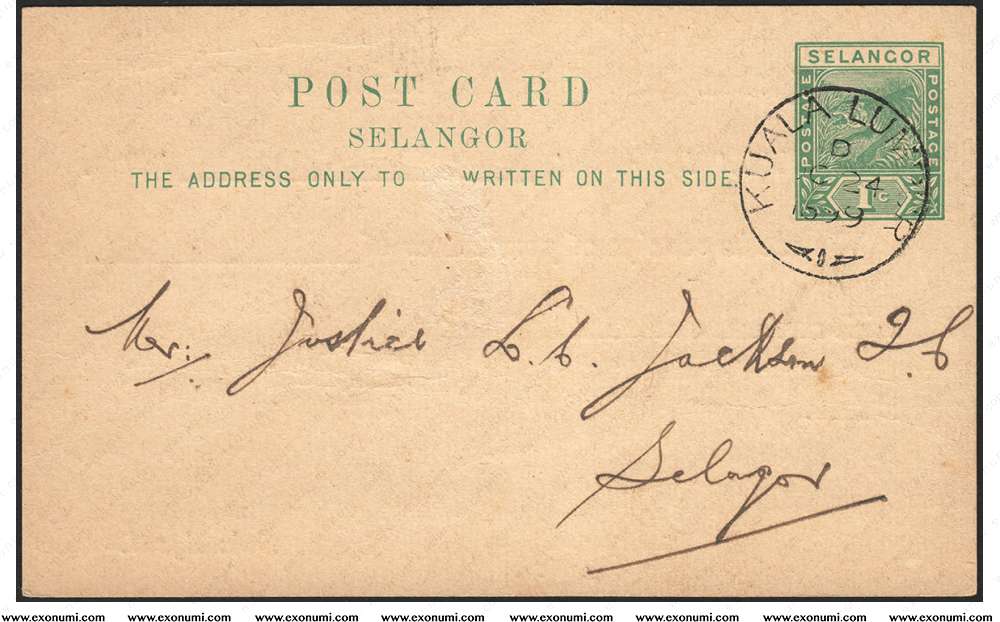 SELANGOR
POSTAGE
POSTAGE
1c
POST CARD
SELANGOR
THE ADDRESS ONLY TO WRITTEN ON THIS SIDE
KUALA LUMPUR
B
24
1899
Mr. Justice L. C. Jackson Q C
Selagor
www.exonumi.com www.exonumi.com www.exonumi.com www.exonumi.com www.exonumi.com www.exonumi.com www.exonumi.com www.exonumi.com